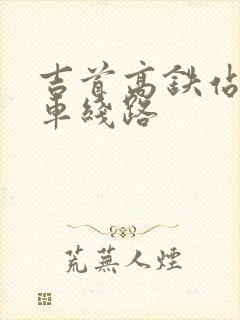 吉首高鉄佔
車綫路
荒蕪人煙